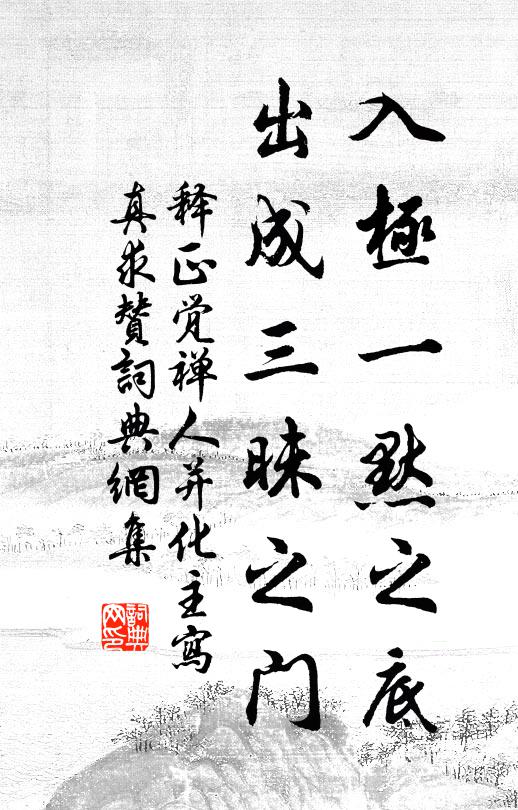 入極一默之底
出成三昧之门
释正觉禅人并化主寫
真求赞詞典網集
詞典網印